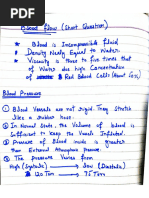 Blood flow (Short Question)
* Blood is Incompressible fluid
* Density Nearly Equal to Water.
* Viscosity is Three to five times that
of Water due high Concentration
of Red Blood Cells (About 50%)
Blood Pressure
① Blood Vessels are not rigid. They stretch
like a rubber hose.
② In Normal State, the Volume of blood is
Sufficient to keep the Vessels Inflated.
③ Pressure of Blood inside is greater
than External Atmospheric Pressure.
④ The Pressure Varies from
High (Systolic) to Low (Diastolic)
120 Torr 75 Torr